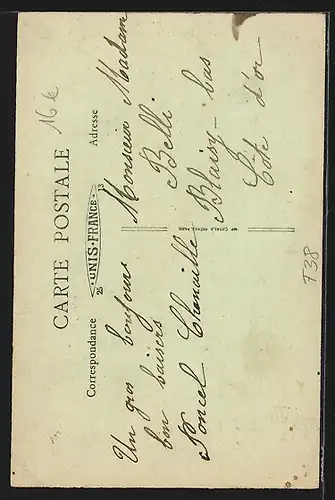 CARTE POSTALE
Correspondance
Adresse
25 UNIS-FRANCE 13
Un gros bonjour
bon baisers
Poncel Chenaille
Monsieur Madam
Belli
Blaisy-bas
Côte d'or
16 k
F38